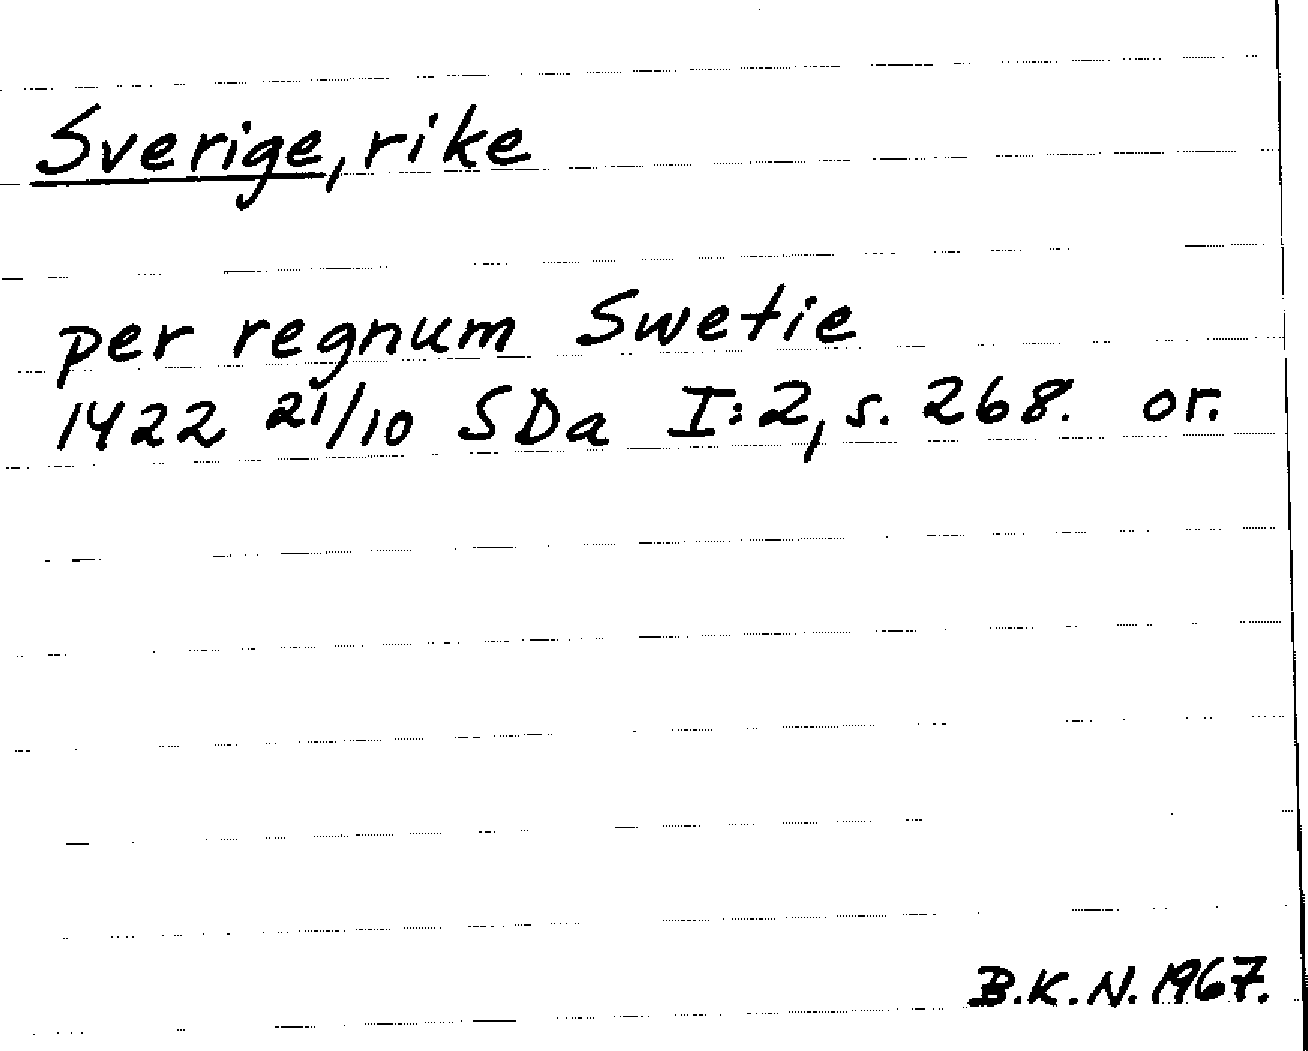 Sverige, rike
per regnum Swetie
1422 21/10 SDa I:2, s. 268. or.
B.K.N. 1967.